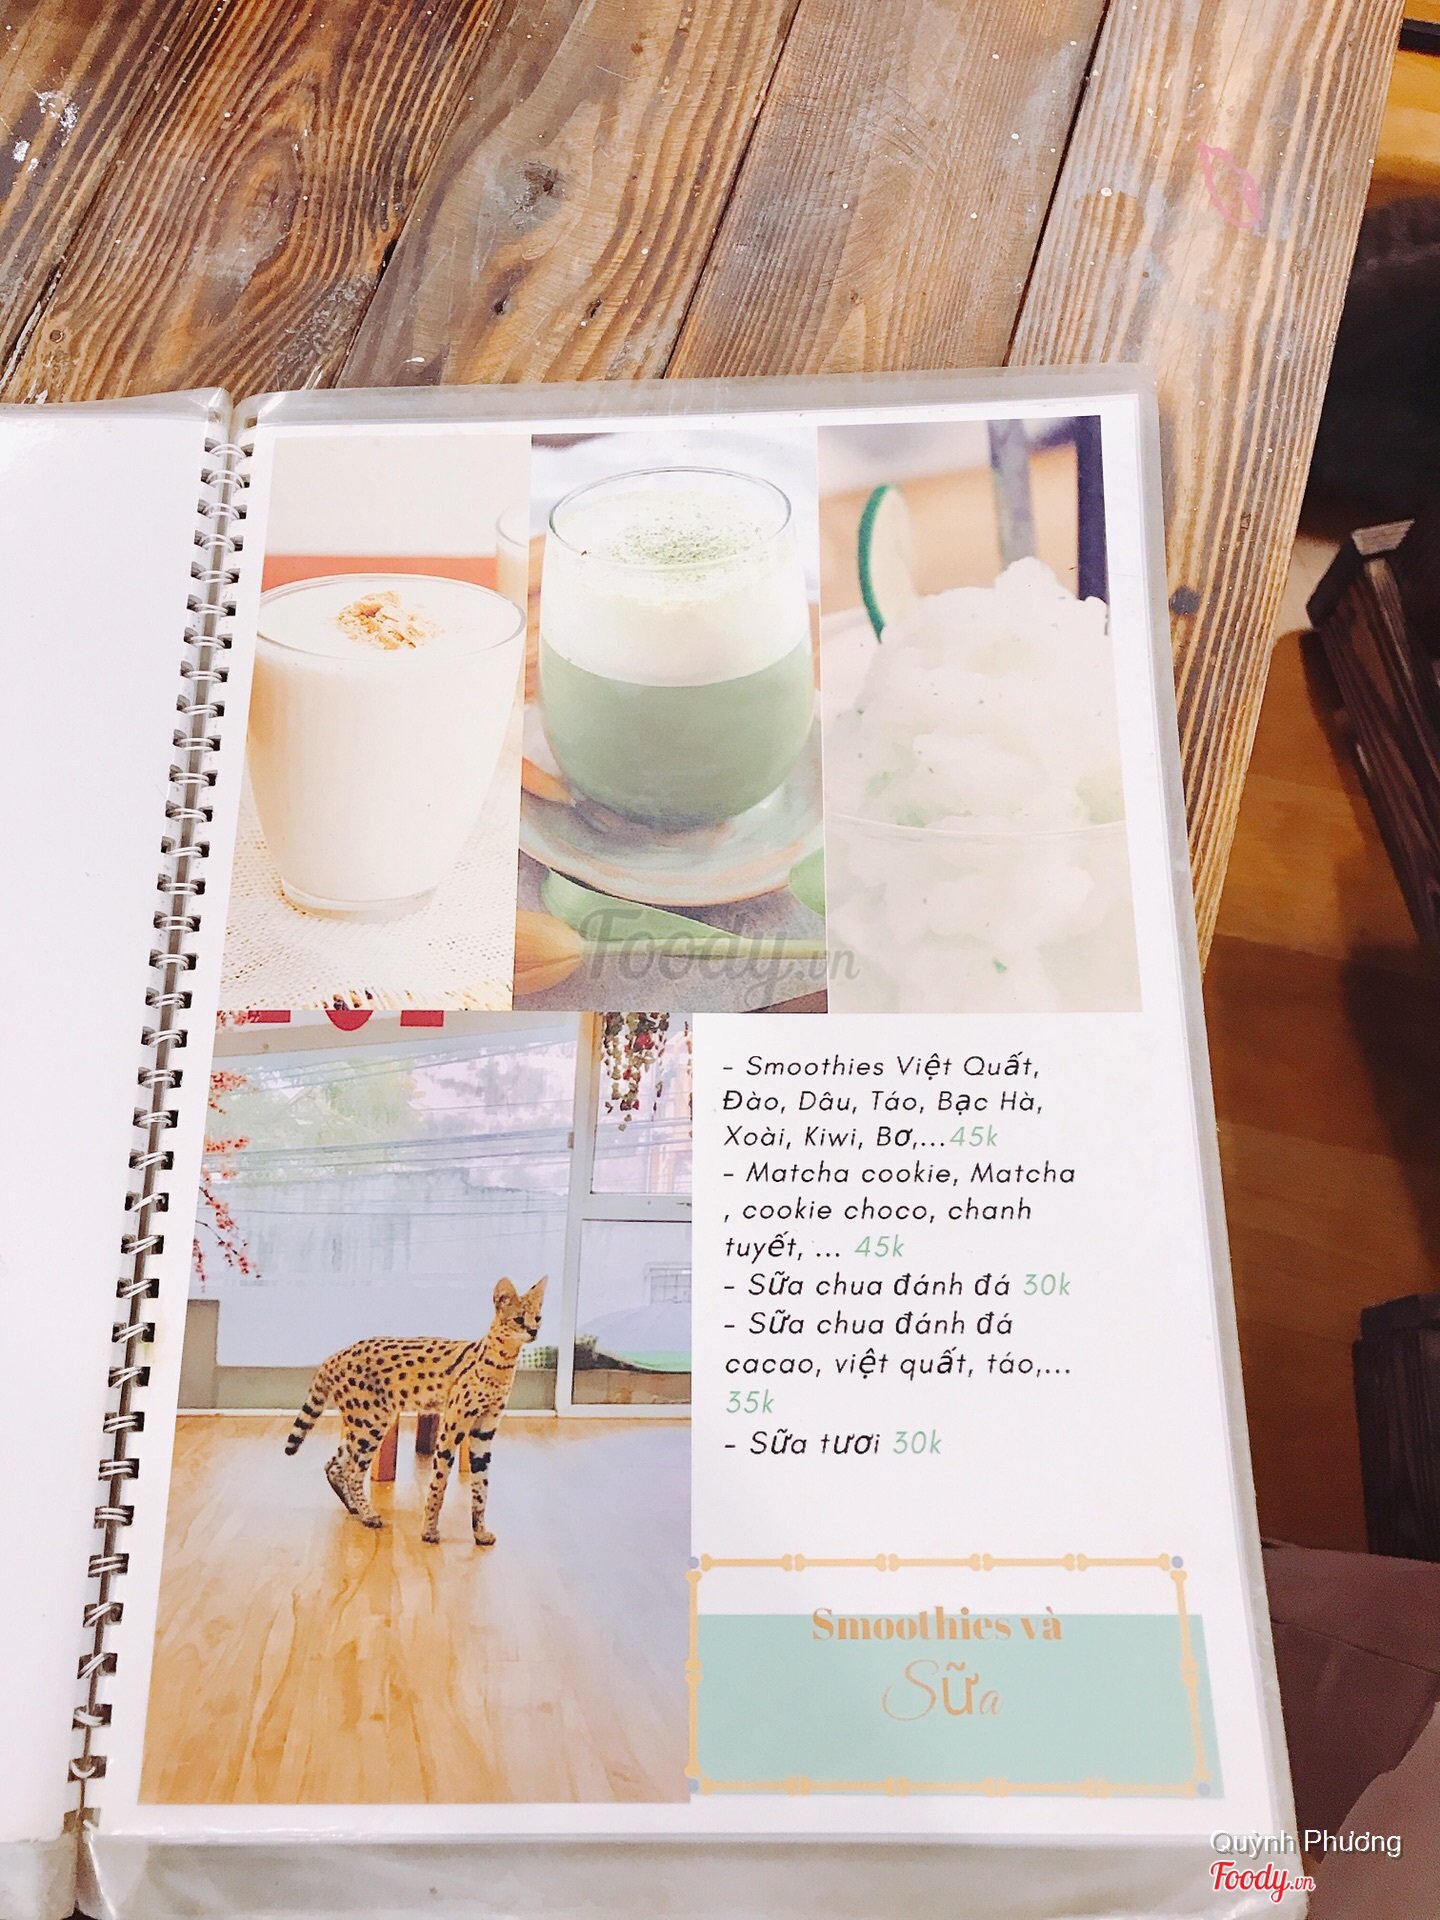 - Smoothies Việt Quất,
Đào, Dâu, Táo, Bạc Hà,
Xoài, Kiwi, Bơ,...45k
- Matcha cookie, Matcha
, cookie choco, chanh
tuyết, ... 45k
- Sữa chua đánh đá 30k
- Sữa chua đánh đá
cacao, việt quất, táo,...
35k
- Sữa tươi 30k
Smoothies và
Sữa
Foody.vn
Quỳnh Phương
Foody.vn